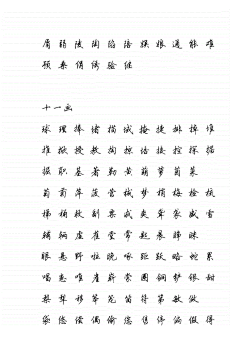 屑 弱 陵 陶 陷 陪 娱 娘 通 能 难
预 桑 绢 绣 验 继
十一画
球 理 捧 堵 描 域 掩 捷 排 掉 堆
推 掀 授 教 掏 掠 培 接 控 探 据
掘 职 基 著 勒 黄 萌 萝 菌 菜
萄 菊 萍 菠 营 械 梦 梢 梅 检
梯 桶 救 副 票 戚 爽 聋 袭 盛 雪
辅 辆 虚 雀 堂 常 匙 晨 睁 眯
眼 悬 野 啦 晚 啄 距 跃 略 蛇 累
唱 患 唯 崖 崭 崇 圈 铜 银 甜
梨 犁 移 笨 笼 笛 符 第 敏 做
袋 悠 偿 偶 偷 您 售 停 偏 假 得